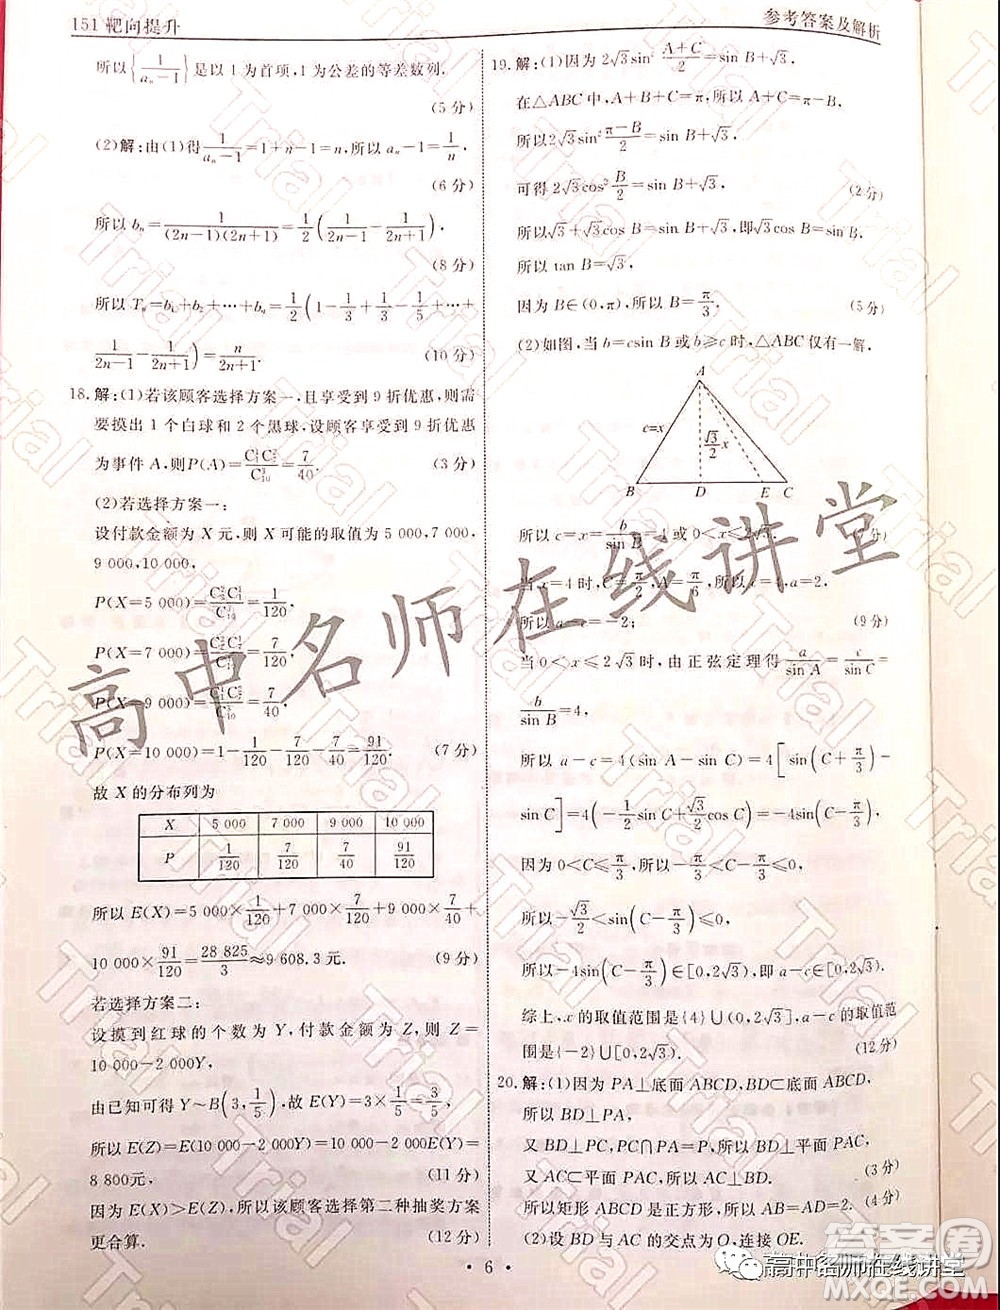 151 靶向提升
参考答案及解析
所以{1/(aₙ−1)}是以1为首项,1为公差的等差数列.
(5分)
(2)解:由(1)得1/(aₙ−1)=1+n−1=n,所以aₙ−1=1/n.
(6分)
所以bₙ=1/((2n−1)(2n+1))=1/2(1/(2n−1)−1/(2n+1)).
(8分)
所以Tₙ=b₁+b₂+…+bₙ=1/2(1−1/3+1/3−1/5+…+
1/(2n−1)−1/(2n+1))=n/(2n+1).
(10分)
18.解:(1)若该顾客选择方案一,且享受到9折优惠,则需
要摸出1个白球和2个黑球,设顾客享受到9折优惠
为事件A,则P(A)= =7/40. (3分)
(2)若选择方案一:
设付款金额为X元,则X可能的取值为5 000,7 000,
9 000,10 000,
P(X=5 000)= =1/120,
P(X=7 000)= =7/120,
P(X=9 000)= =7/40,
P(X=10 000)=1−1/120−7/120−7/40=91/120. (7分)
故X的分布列为
X 5 000 7 000 9 000 10 000
P 1/120 7/120 7/40 91/120
所以E(X)=5 000×1/120+7 000×7/120+9 000×7/40+
10 000×91/120=28 825/3≈9 608.3元. (9分)
若选择方案二:
设摸到红球的个数为Y,付款金额为Z,则Z=
10 000−2 000Y,
由已知可得Y~B(3,1/5),故E(Y)=3×1/5=3/5,
所以E(Z)=E(10 000−2 000Y)=10 000−2 000E(Y)=
8 800元. (11分)
因为E(X)>E(Z),所以该顾客选择第二种抽奖方案
更合算. (12分)
19.解:(1)因为2√3sin²((A+C)/2)=sin B+√3.
在△ABC中,A+B+C=π,所以A+C=π−B,
所以2√3sin²((π−B)/2)=sin B+√3,
可得2√3cos²(B/2)=sin B+√3, (2分)
所以√3+√3cos B=sin B+√3,即√3cos B=sin B.
所以tan B=√3.
因为B∈(0,π),所以B=π/3. (5分)
(2)如图,当b=csin B或b≥c时,△ABC仅有一解.
A
c=x
√3/2 x
B D E C
所以c=x=b/sin B=4或0<x≤2√3.
当c=4时,C=π/2,A=π/6,所以c=4,a=2,
所以a−c=−2; (9分)
当0<x≤2√3时,由正弦定理得a/sin A=c/sin C=
b/sin B=4,
所以a−c=4(sin A−sin C)=4[sin(C+π/3)−
sin C]=4(−1/2sin C+√3/2cos C)=−4sin(C−π/3),
因为0<C≤π/3,所以−π/3<C−π/3≤0,
所以−√3/2<sin(C−π/3)≤0,
所以−4sin(C−π/3)∈[0,2√3),即a−c∈[0,2√3).
综上,x的取值范围是{4}∪(0,2√3],a−c的取值范
围是{−2}∪[0,2√3). (12分)
20.解:(1)因为PA⊥底面ABCD,BD⊂底面ABCD,
所以BD⊥PA,
又BD⊥PC,PC∩PA=P,所以BD⊥平面PAC,
又AC⊂平面PAC,所以BD⊥AC. (3分)
所以矩形ABCD是正方形,所以AB=AD=2. (4分)
(2)设BD与AC的交点为O,连接OE.
• 6 •
高中名师在线讲堂
高中名师在线讲堂
答案圈
Trial